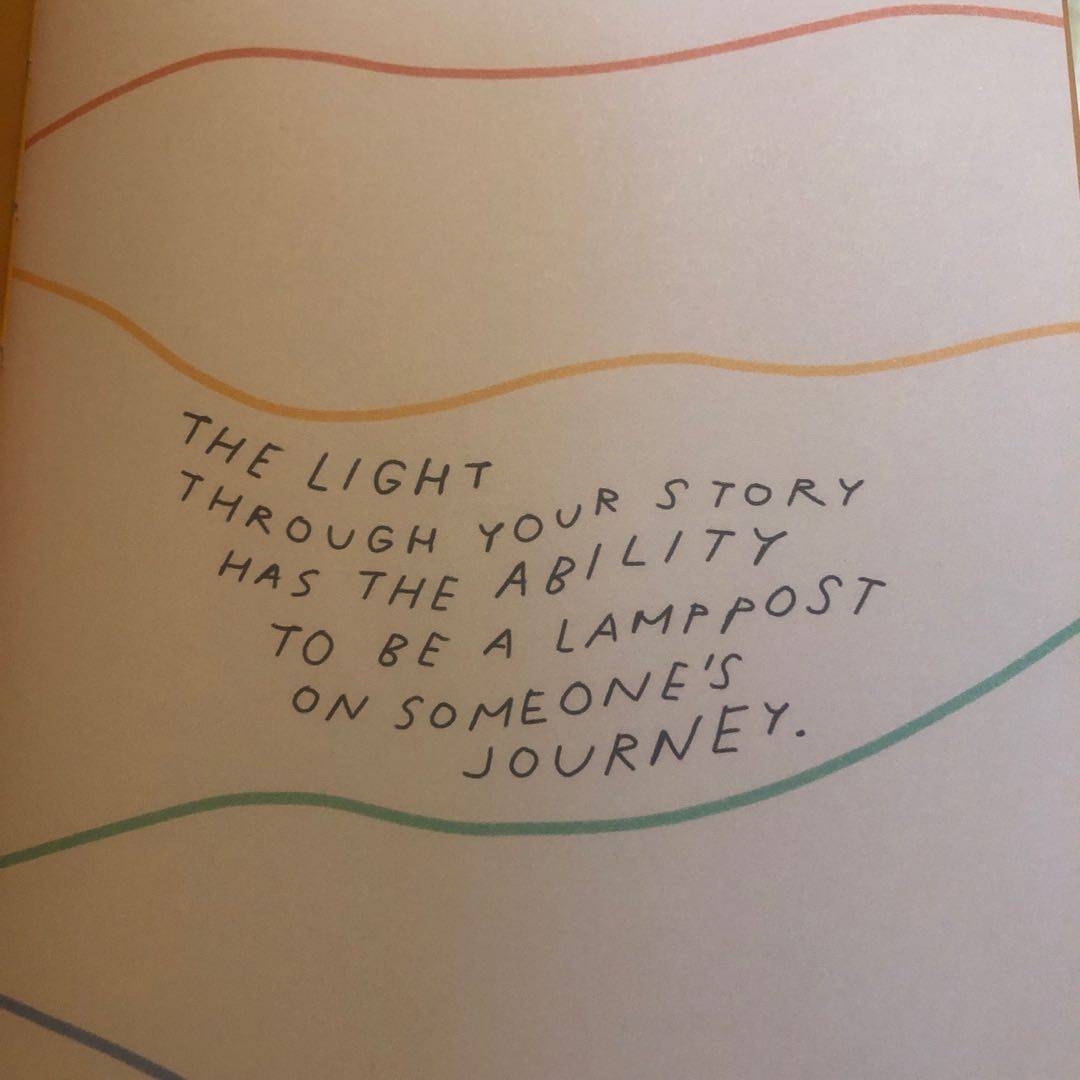 THE LIGHT
THROUGH YOUR STORY
HAS THE ABILITY
TO BE A LAMPPOST
ON SOMEONE'S
JOURNEY.